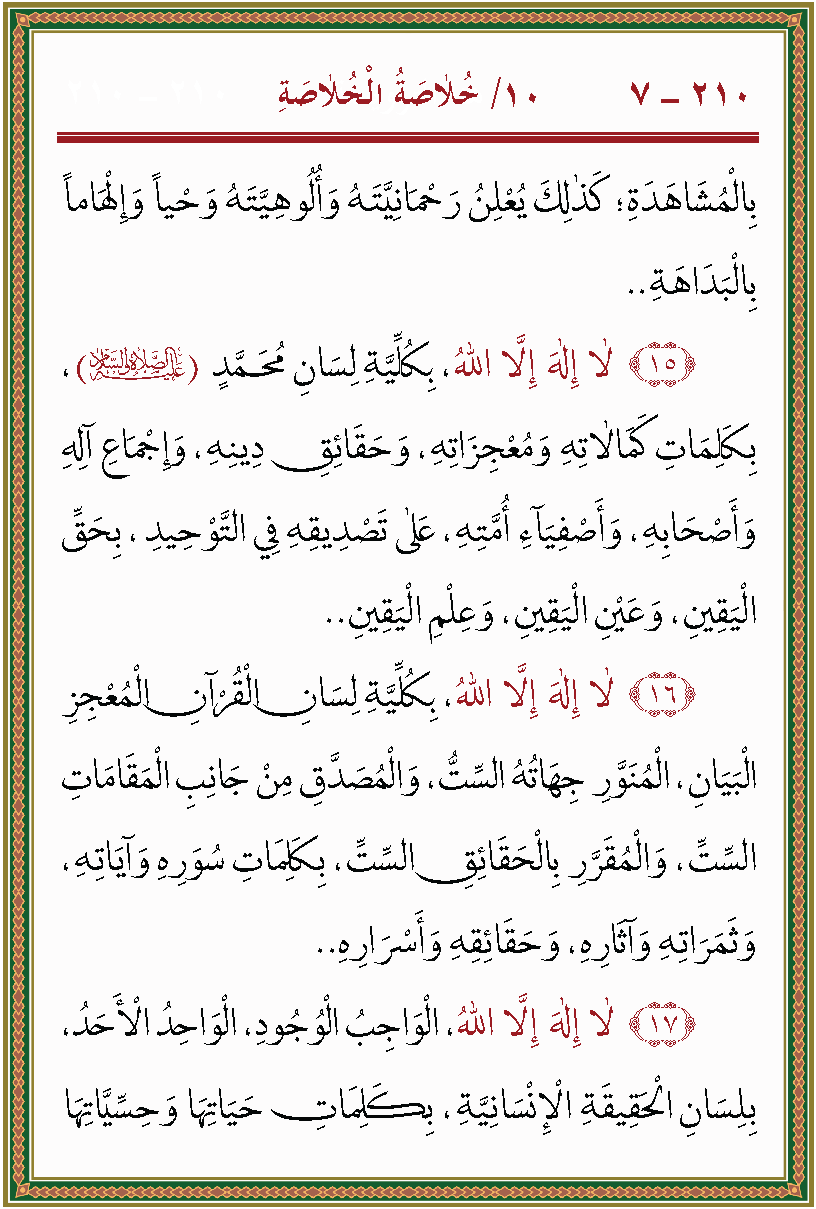 ٢١٠ ـ ٧ ١٠/ خُلَاصَةُ الْخُلَاصَةِ ٢١٠ ـ ٢١٠
بِالْمُشَاهَدَةِ؛ كَذٰلِكَ يُعْلِنُ رَحْمَانِيَّتَهُ وَأُلُوهِيَّتَهُ وَحْياً وَإِلْهَاماً
بِالْبَدَاهَةِ..
﴿١٥﴾ لٰا إِلٰهَ إِلَّا اللهُ، بِكُلِّيَّةِ لِسَانِ مُحَمَّدٍ (عَلَيْهِ الصَّلَاةُ وَالسَّلَامُ)،
بِكَلِمَاتِ كَمَالٰاتِهِ وَمُعْجِزَاتِهِ، وَحَقَائِقِ دِينِهِ، وَإِجْمَاعِ آلِهِ
وَأَصْحَابِهِ، وَأَصْفِيَآءِ أُمَّتِهِ، عَلٰى تَصْدِيقِهِ فِي التَّوْحِيدِ، بِحَقِّ
الْيَقِينِ، وَعَيْنِ الْيَقِينِ، وَعِلْمِ الْيَقِينِ..
﴿١٦﴾ لٰا إِلٰهَ إِلَّا اللهُ، بِكُلِّيَّةِ لِسَانِ الْقُرْآنِ الْمُعْجِزِ
الْبَيَانِ، الْمُنَوَّرِ جِهَاتُهُ السِّتُّ، وَالْمُصَدَّقِ مِنْ جَانِبِ الْمَقَامَاتِ
السِّتِّ، وَالْمُقَرَّرِ بِالْحَقَائِقِ السِّتِّ، بِكَلِمَاتِ سُوَرِهِ وَآيَاتِهِ،
وَثَمَرَاتِهِ وَآثَارِهِ، وَحَقَائِقِهِ وَأَسْرَارِهِ..
﴿١٧﴾ لٰا إِلٰهَ إِلَّا اللهُ، الْوَاجِبُ الْوُجُودِ، الْوَاحِدُ الْأَحَدُ،
بِلِسَانِ الْحَقِيقَةِ الْإِنْسَانِيَّةِ، بِكَلِمَاتِ حَيَاتِهَا وَحِسِّيَّاتِهَا